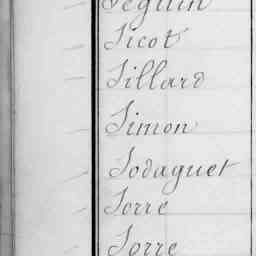 Seguin
Sicot
Sillard
Simon
Sodaguet
Sorre
Sorre